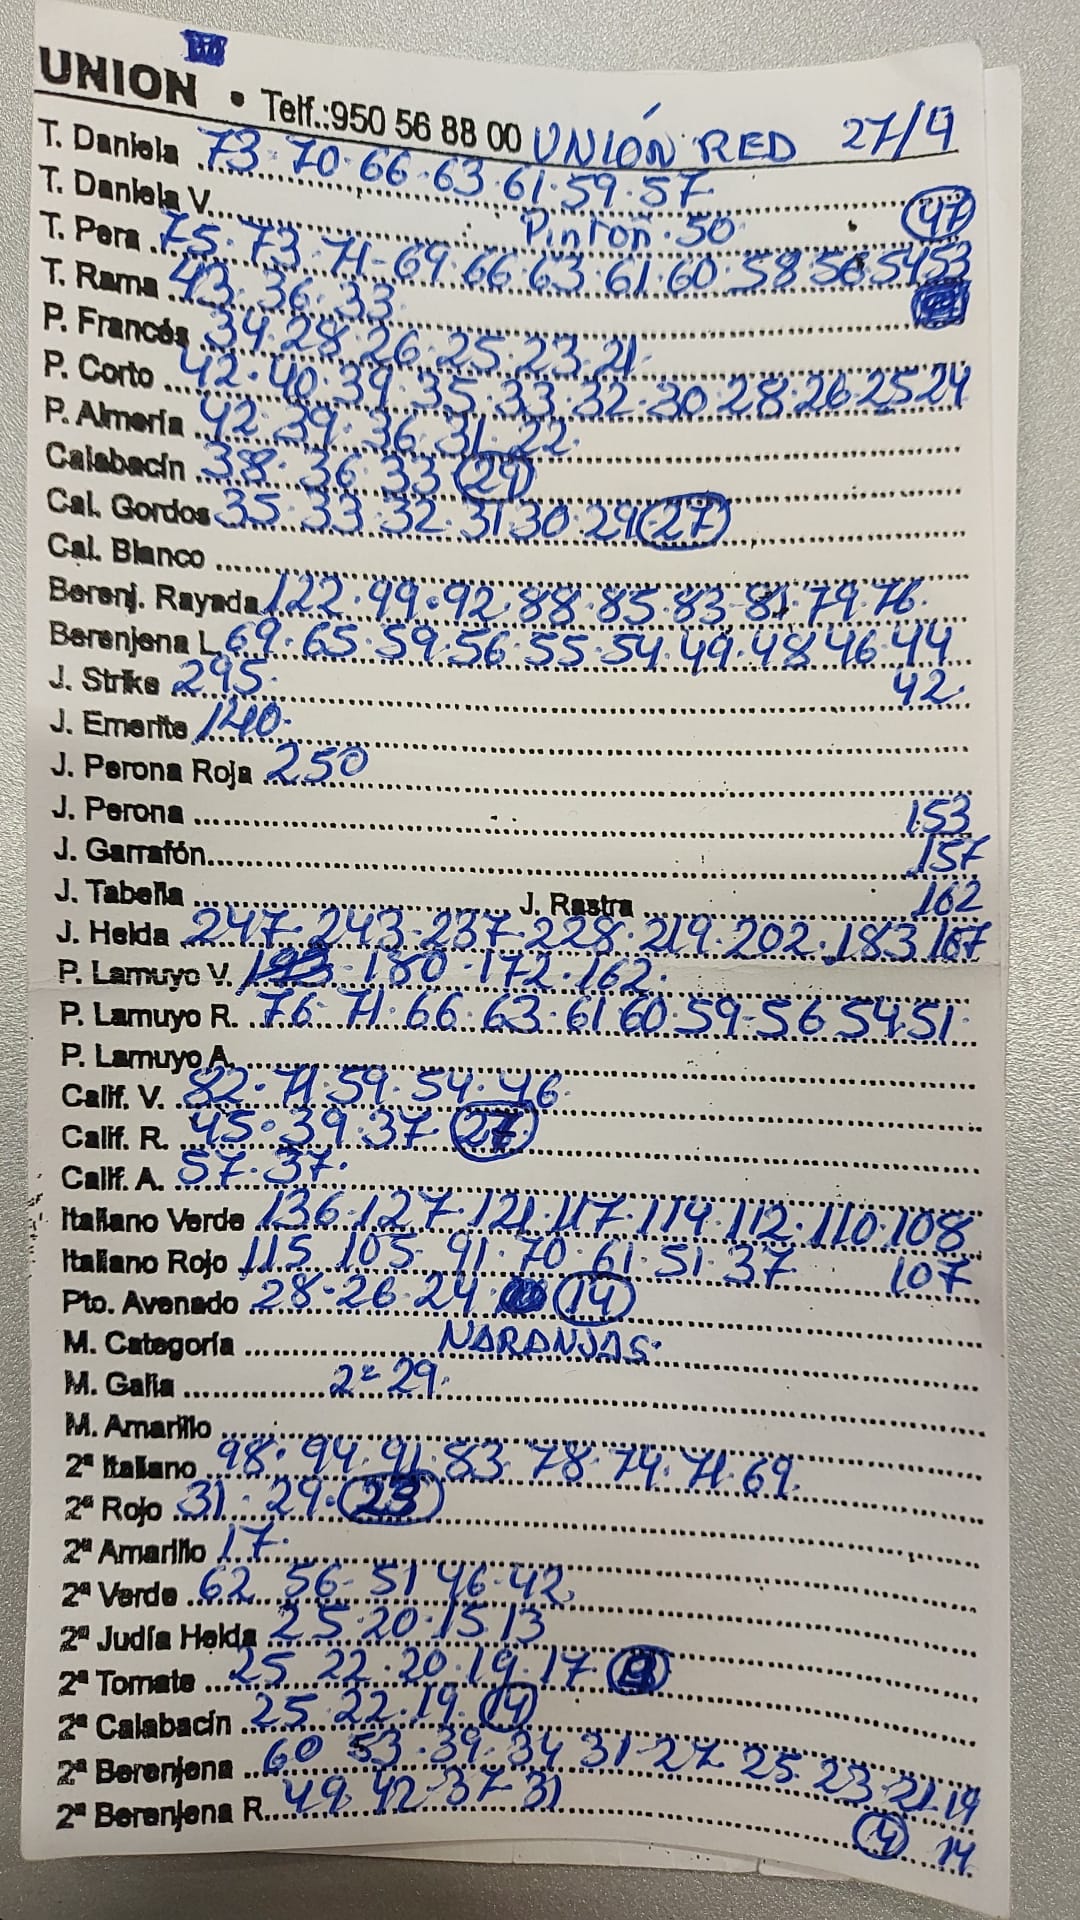 UNION • Telf.:950 56 88 00 UNIÓN RED 27/4
T. Daniela 73·70·66·63·61·59·57
T. Daniela V. Pinton·50 47
T. Pera 75·73·71-69·66·63·61·60·58 56·54 53
T. Rama 43·36·33
P. Francés 34·28·26·25·23·21·
P. Corto 42·40·39·35·33·32·30·28·26·25 24
P. Almería 42·39·36·31·22·
Calabacín 38·36·33 29
Cal. Gordos 35·33·32·31 30·29 27
Cal. Blanco
Berenj. Rayada 122·99·92·88·85·83·81·79·76·
Berenjena L. 69·65·59·56·55·54·49·48 46·44
J. Strike 295· 42·
J. Emerite 140·
J. Perona Roja 250
J. Perona 153
J. Garrafón 157
J. Tabella J. Rastra 162
J. Helda 247·243-237·228·219·202·183 167
P. Lamuyo V. 180·172·162·
P. Lamuyo R. 76·71·66·63·61 60·59-56 54 51·
P. Lamuyo A.
Calif. V. 82·71·59·54·46·
Calif. R. 45·39·37· 27
Calif. A. 57·37·
Italiano Verde 136·127·121·117·114·112·110·108
Italiano Rojo 115 105-91·70·61·51·37 107
Pto. Avenado 28·26·24· 14
M. Categoría NARANJAS·
M. Galia 2ª 29·
M. Amarillo
2ª Italiano 98·94·91·83·78·74·71·69
2ª Rojo 31·29· 23
2ª Amarillo 17·
2ª Verde 62 56-51 46-42
2ª Judía Helda 25·20·15 13
2ª Tomate 25 22·20·19·17·
2ª Calabacín 25·22·19· 14
2ª Berenjena 60 53·39·34 31-27 25 23·21·19
2ª Berenjena R. 49 42·37·31 4 14